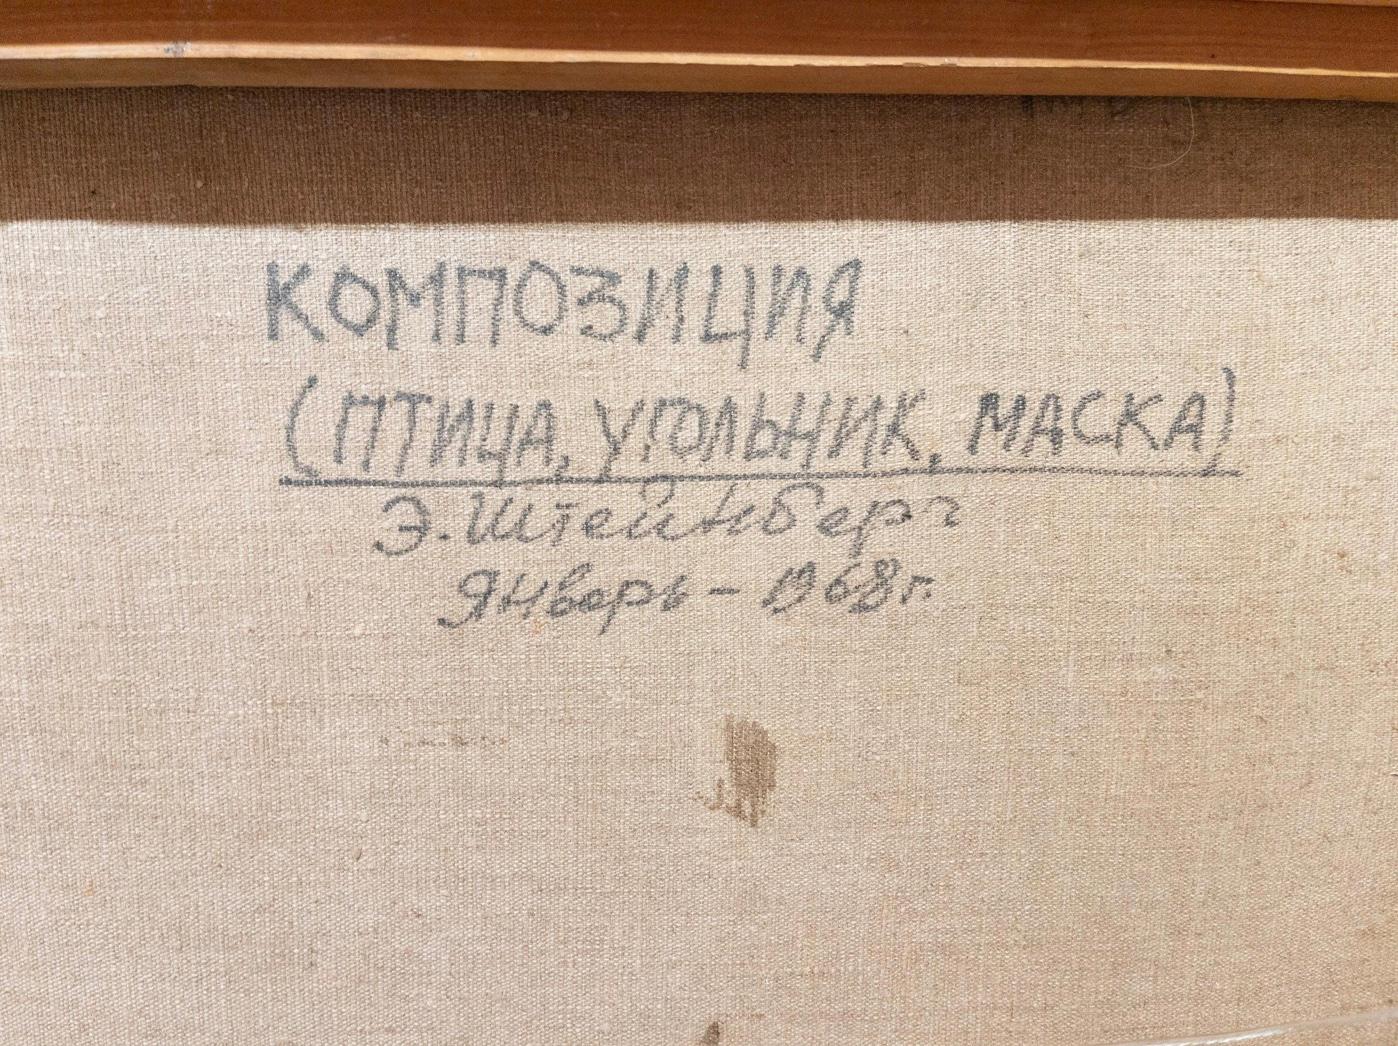 КОМПОЗИЦИЯ
(ПТИЦА, УГОЛЬНИК, МАСКА)
Э. Штейнберг
Январь – 1968 г.